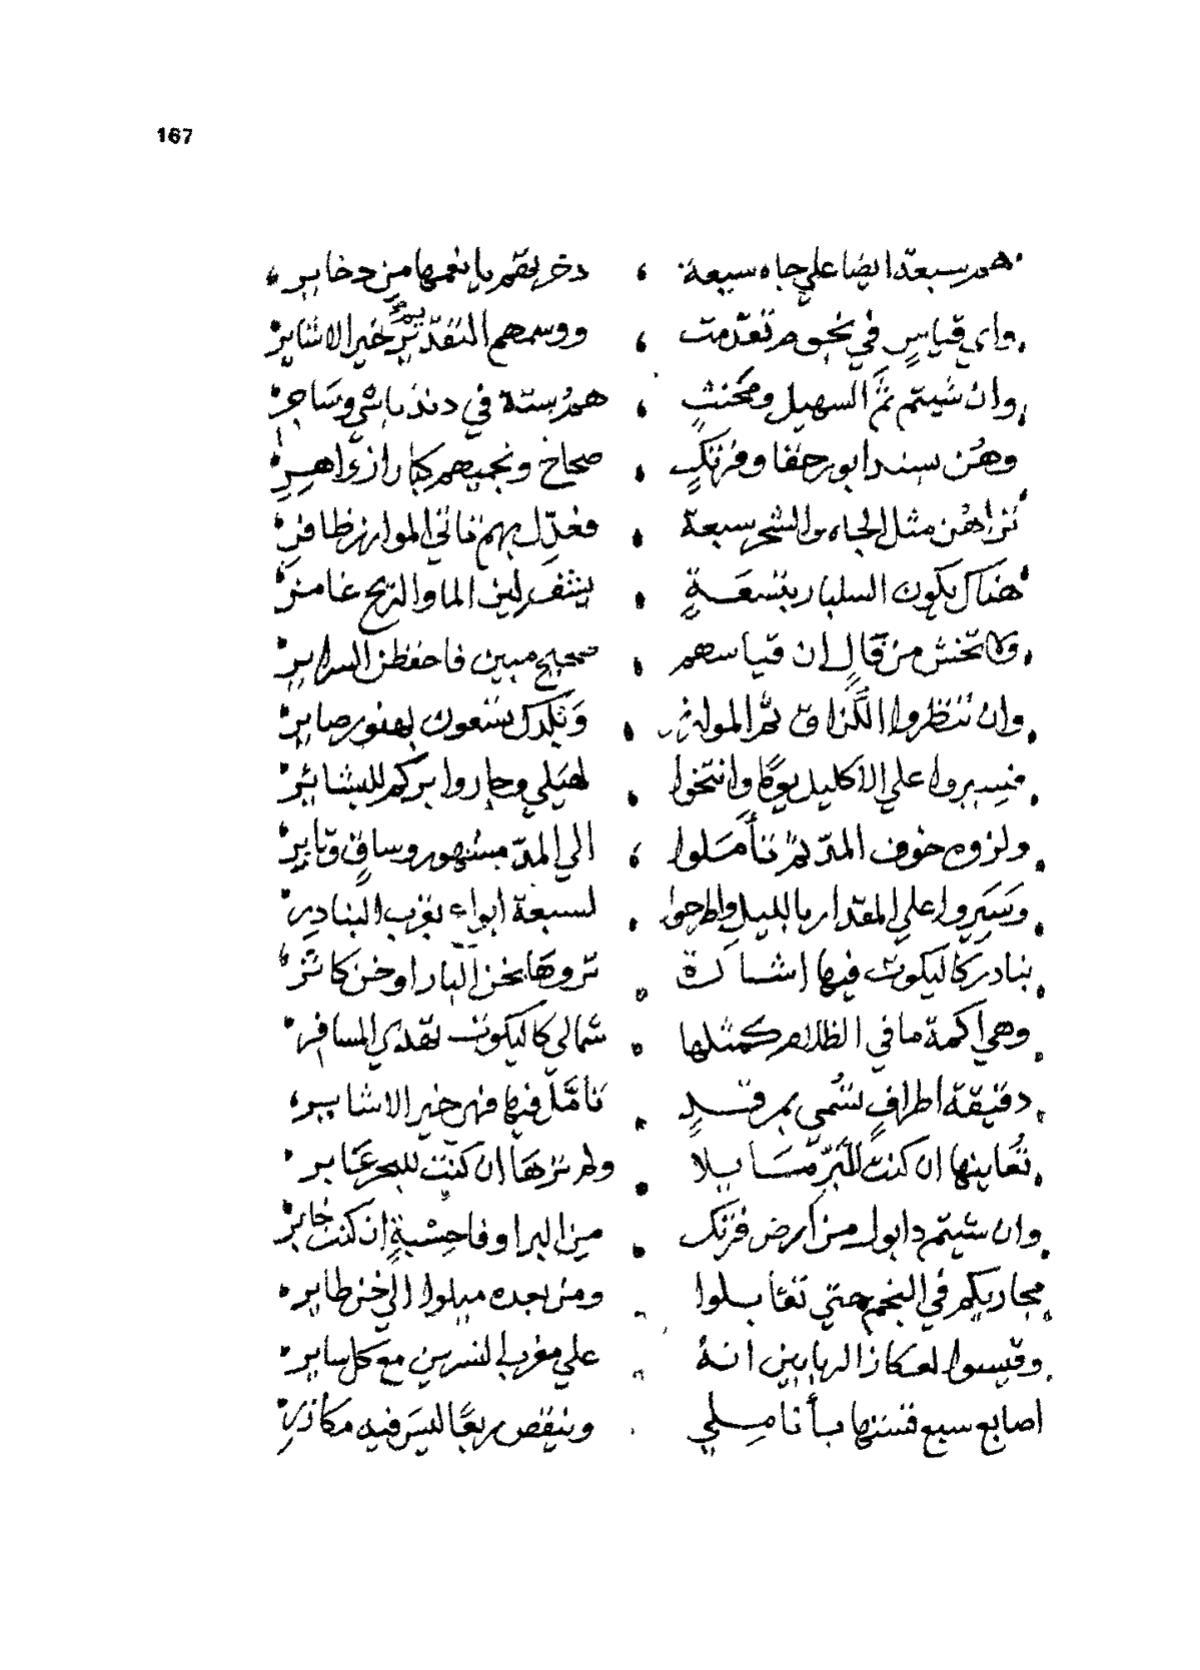 167
هم سبعة ايضا علي جاه سبعة دخر بقمر يا نعمها من دخاير
واي قياسٍ في نجوم تقدمت ووسمهم التقدير خير الاشاير
وان شيتم ثمَّ السهيل ومحنثٍ هم ستة في دندباشي وساجر
وهُن سندابور حقا وفرتكٍ صحاح ونجميهم كبار ازواهرٍ
تراهُن مثل الجاه والشحر سبعة فعدِّل بهم تاتي الموارزظافر
هناك يكون السليبار بتسعَةٍ بيثفر لين الما والريح غامر
ولا تخش من قال ان قياسهم صحيح مبين فاحفظن السراير
وان تنظروا الكُنزاق ثم الموارز وتلدك يسعون بهنور صاير
فسيروا علي الاكليل يومًا وانتخوا لهيلي وجاروا بركم للبشاير
ولزوم خوف المدّ ثمَّ تأمَلوا الي المدّ مشهور وساقٍ وتاير
وسَيروا علي المقدار بالليل واطرحوا لسبعة ابواع بقرب البنادر
بنادر كاليكوت فيها اشارة تروها بخن البار او خن كاثر
وهي اكمة ما في الظلام كمثلها شمالي كاليكوت تهدي المسافر
دقيقة اطرافٍ تسُمي بمرقدٍ تامَّل فيها فهي خير الاشاير
تُعاينها ان كنت للبَرِّ مسَايلا ولم ترهَا ان كنت للبحر عَابر
وان شيتم دابول من ارض فرتك من البر او فاحسبةٍ ان كنت خابر
مجاريكم في النجم حتي تقابلوا ومن بعده ميلوا الي خن طاير
وقيسوا لعكاز الرهابين انهُ علي مغرب النسرين مع كل ساير
اصابع سبع قستها بأنامِلي وينقص ربعًا ليس فيه مكاذر